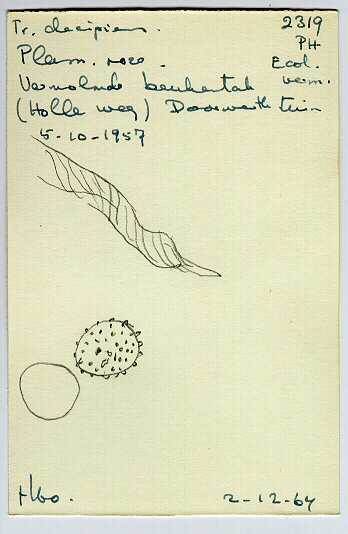 Tr. decipiens.
2319
PH
Plasm. roze.
Ecol.
verm.
Vermolmde beukentak
(Holle weg) Doorwerth tuin
5-10-1957
Hbo.
2-12-64